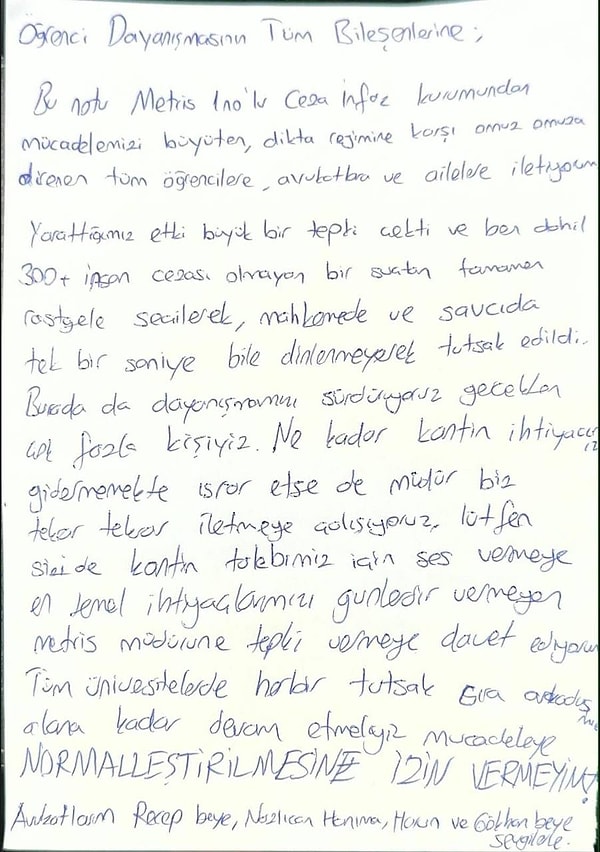 Öğrenci Dayanışmasının Tüm Bileşenlerine;
Bu notu Metris 1 no'lu Ceza İnfaz kurumundan
mücadelemizi büyüten, dikta rejimine karşı omuz omuza
direnen tüm öğrencilere, avukatlara ve ailelere iletiyorum
Yarattığımız etki büyük bir tepki çekti ve ben dahil
300+ insan cezası olmayan bir suçtan tamamen
rastgele seçilerek, mahkemede ve savcıda
tek bir saniye bile dinlenmeyerek tutsak edildi.
Burada da dayanışmamızı sürdürüyoruz gerçekten
çok fazla kişiyiz. Ne kadar kantin ihtiyacımız
gidermemekte ısrar etse de müdür biz
tekrar tekrar iletmeye çalışıyoruz, lütfen
sizi de kantin talebimiz için ses vermeye
en temel ihtiyaçlarımızı günlerdir vermeyen
metris müdürüne tepki vermeye davet ediyorum
Tüm üniversitelerde her bir tutsak sıra arkadaşını
alana kadar devam etmeliyiz mücadeleye
NORMALLEŞTİRİLMESİNE İZİN VERMEYİN!
Avukatlarım Recep beye, Nazlıcan Hanıma, Harun ve Gökhan beye
sevgilerle.